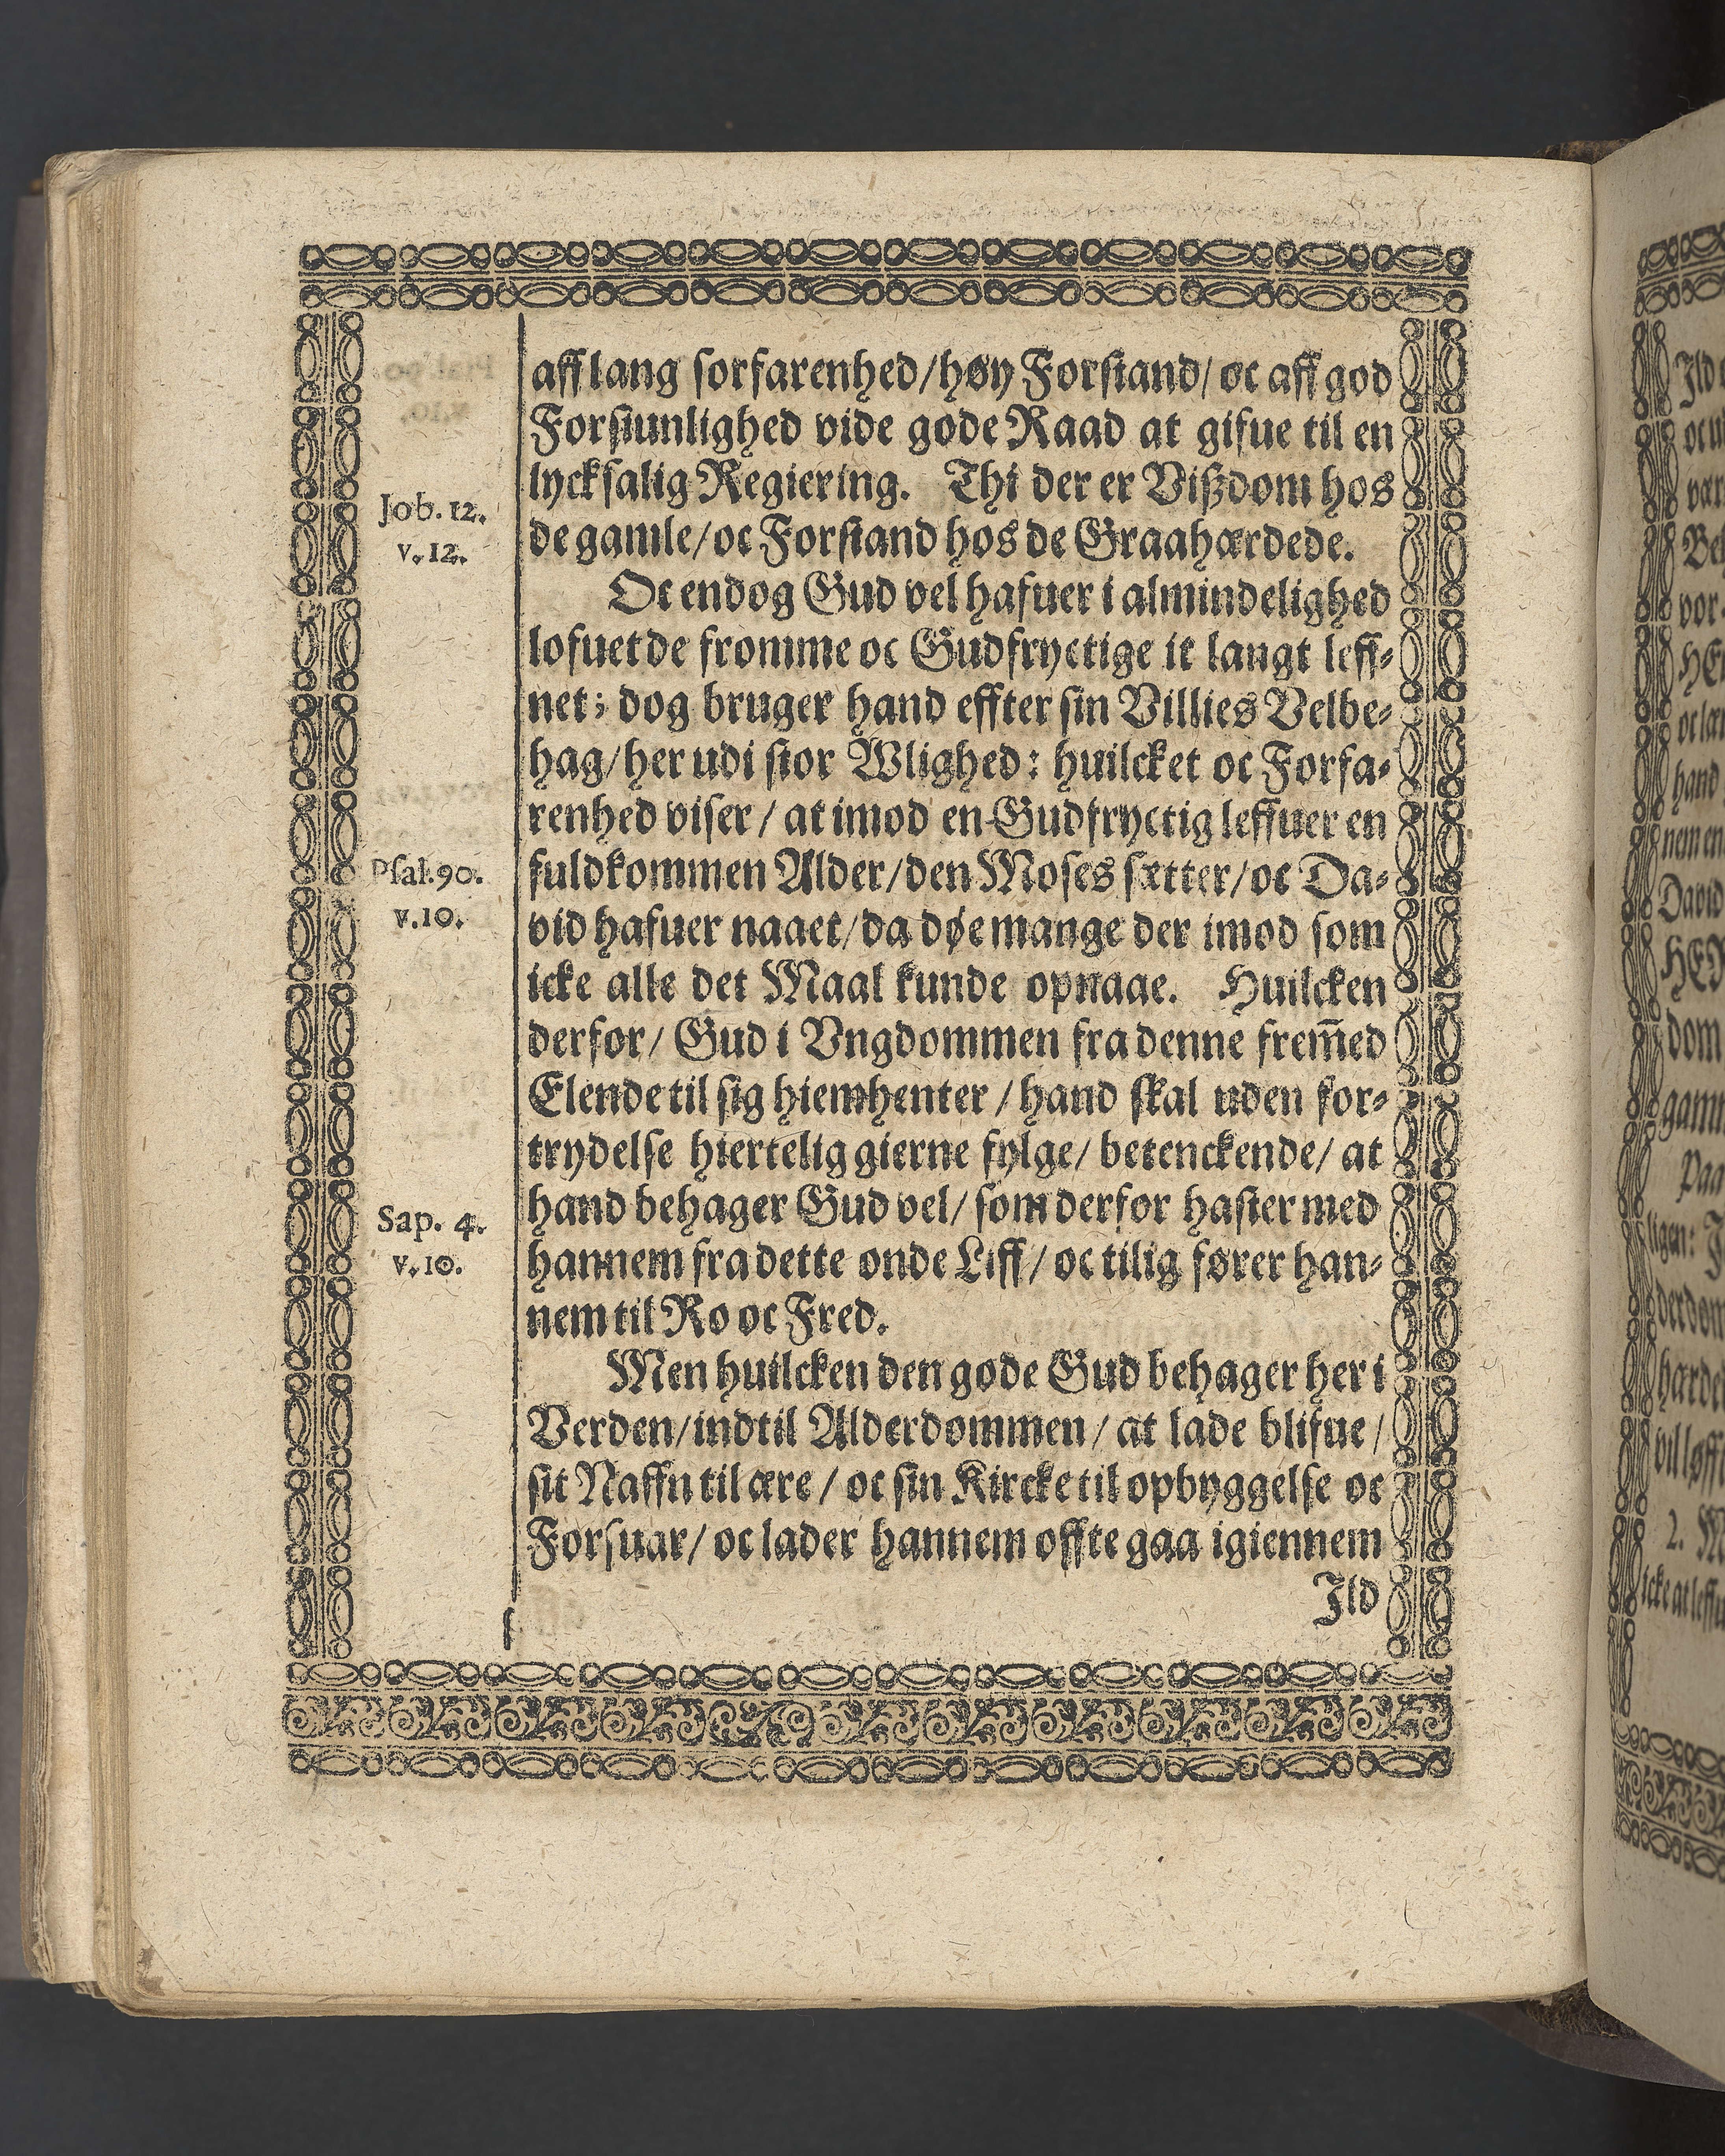 aff lang forfarenhed/høy Forstand/ oc aff god
Forsiunlighed vide gode Raad at gifue til en
lycksalig Regiering. Thi der er Vißdom hos
Job. 12.
v. 12.
de gamle/oc Forstand hos de Graahærdede.
Oc endog Gud vel hafuer i almindelighed
lofuet de fromme oc Gudfryctige it langt leff-
net; dog bruger hand effter sin Villies Velbe-
hag/her udi stor Wlighed: huilcket oc Forfa-
renhed viser / at imod en Gudfryctig leffuer en
Psal. 90.
v. 10.
fuldkommen Alder/den Moses sætter/oc Da-
vid hafuer naaet/da døe mange der imod som
icke alle det Maal kunde opnaae. Huilcken
derfor/ Gud i Vngdommen fra denne frem̄ed
Elende til sig hiemhenter / hand skal uden for-
trydelse hiertelig gierne fylge/ betenckende/ at
Sap. 4.
v. 10.
hand behager Gud vel/ som derfor haster med
hannem fra dette onde Liff/ oc tilig fører han-
nem til Ro oc Fred.
Men huilcken den gode Gud behager her i
Verden/indtil Alderdommen/ at lade blifue/
sit Naffn til ære / oc sin Kircke til opbyggelse oc
Forsuar/ oc lader hannem offte gaa igiennem
Ild